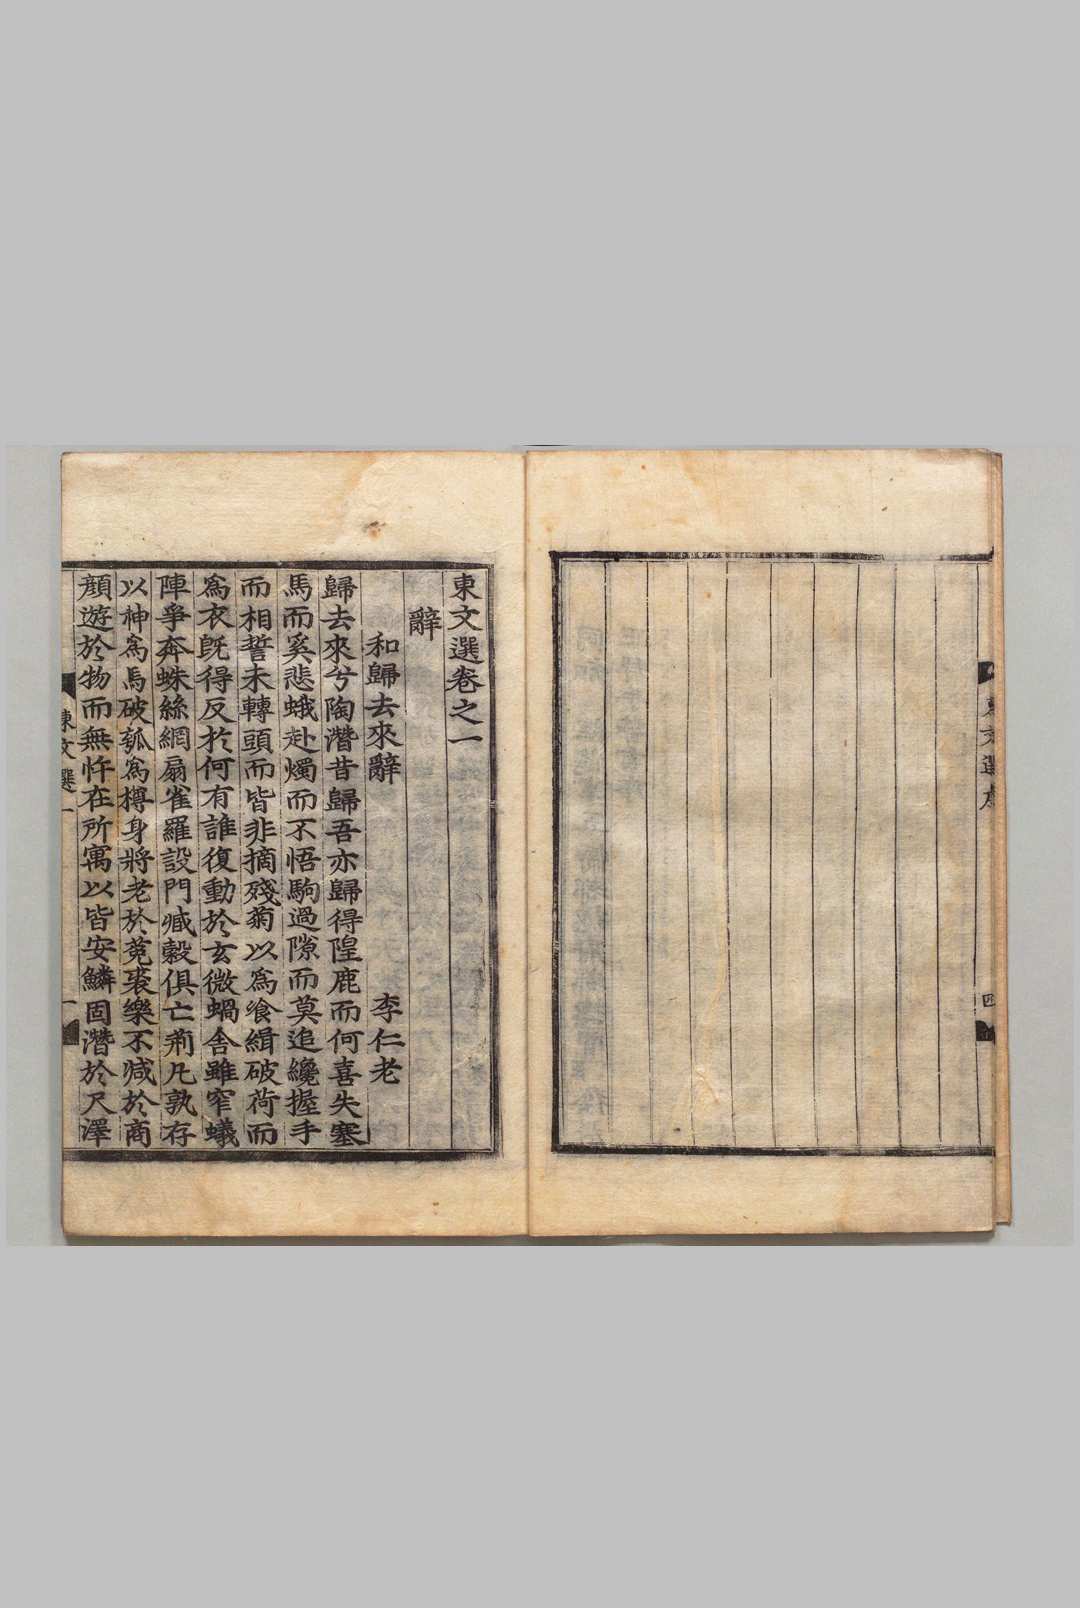 東文選序
四
東文選卷之一
辭
和歸去來辭 李仁老
歸去來兮陶潛昔歸吾亦歸得隍鹿而何喜失塞
馬而奚悲蛾赴燭而不悟駒過隙而莫追纔握手
而相誓未轉頭而皆非摘殘菊以爲飡緝破荷而
爲衣旣得反於何有誰復動於玄微蝸舍雖窄蟻
陣爭奔蛛絲網扇雀羅設門臧穀俱亡荊凡孰存
以神爲馬破瓠爲樽身將老於菟裘樂不減於商
顔遊於物而無忤在所寓以皆安鱗固潛於尺澤
東文選一
一